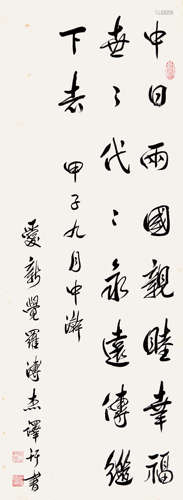 中日兩國親睦幸福
世〻代〻永遠傳繼
下去 甲子九月中澣
愛新覺羅溥杰譯并書